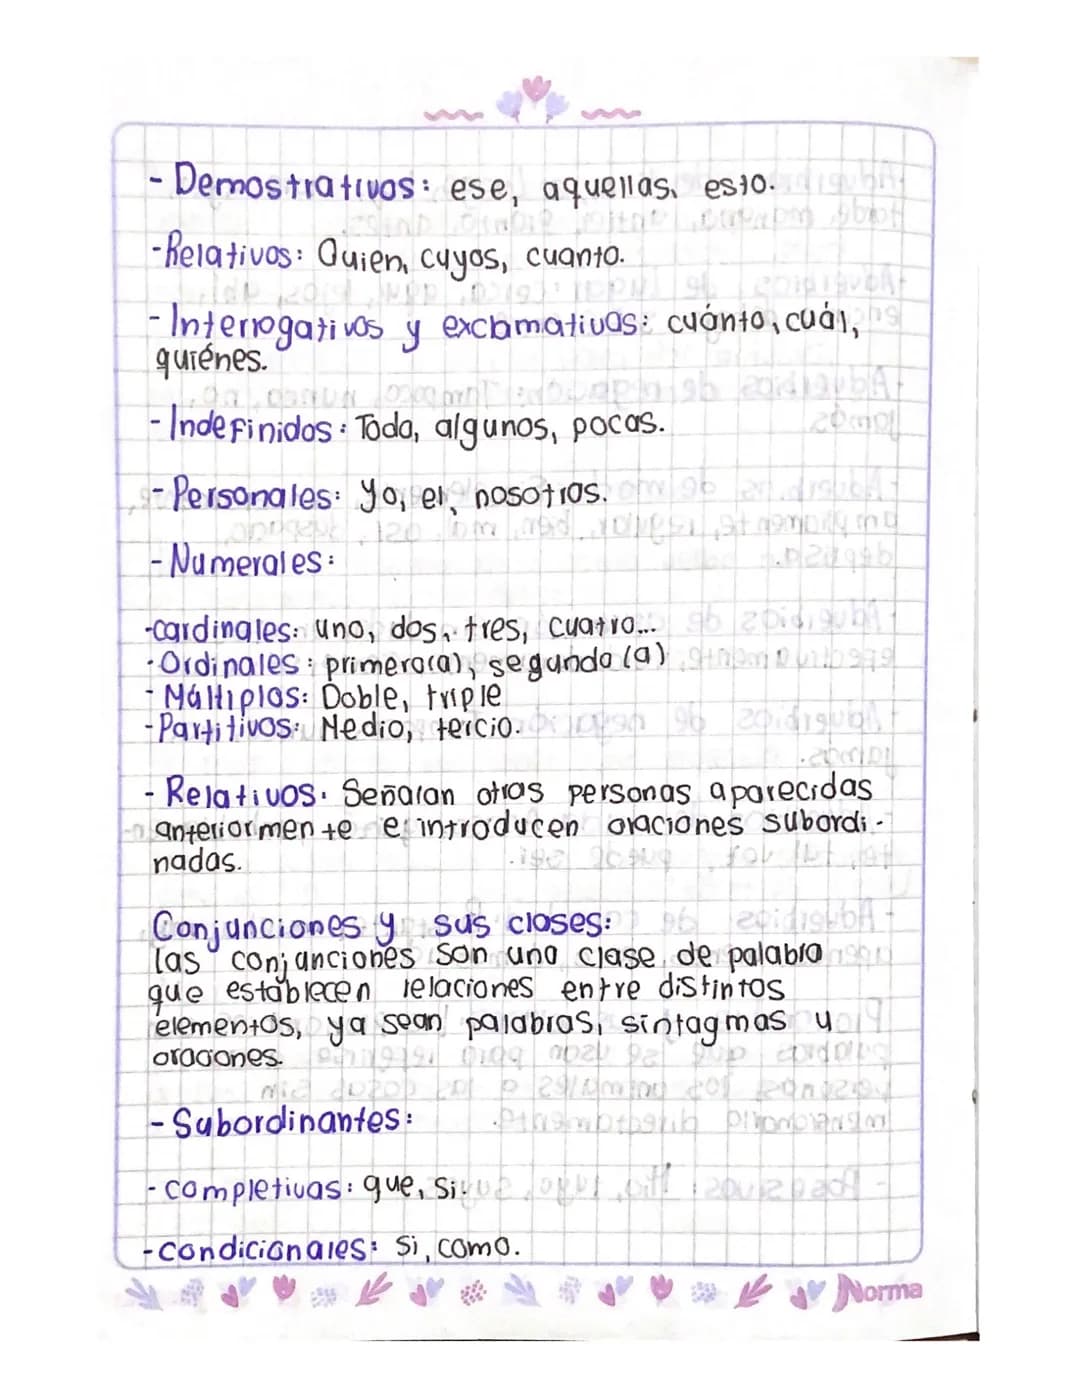 - Demostrativos: ese, aquellas, esto.
-Relativos: Quien, cuyos, cuanto.
- Interrogativos y exclamativas: cuánto, cuál,
quiénes.
- Indefinidos: Todo, algunos, pocas.
- Personales: yo, el, nosotros.
- Numerales:
-cardinales: uno, dos, tres, cuatro...
- Ordinales: primero(a), segundo (a)
- Múltiplos: Doble, triple
- Partitivos: Medio, tercio.
- Relativos. Señalan otras personas aparecidas
anteriormente e introducen oraciones subordi-
nadas.
Conjunciones y sus clases:
las conjunciones son una clase de palabra
que establecen relaciones entre distintos
elementos, ya sean palabras, sintagmas y
oraciones.
- Subordinantes:
- completivas: que, si.
- condicionales: Si, como.
Norma